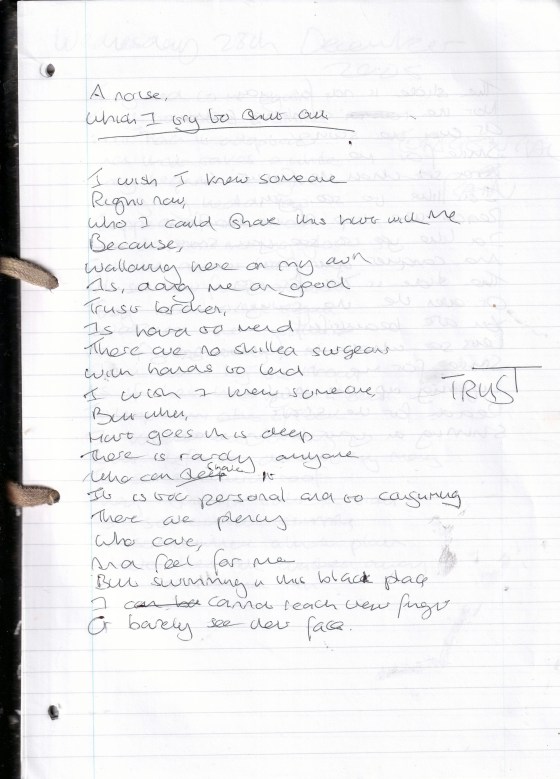 A noise,
which I try to shut out
I wish I knew someone
Right now,
who I could share this hurt with me
Because,
wallowing here on my own
Is, doing me on good
Trust broken,
Is hard to mend
There are no skilled surgeons
with hands to lend
I wish I knew someone,
TRUST
But when,
Hurt goes this deep
There is rarely anyone
who can share it
It is too personal and to consuming
There are plenty
who care,
And feel for me
But swimming in this black place
I cannot reach their fingers
Or barely see their face.